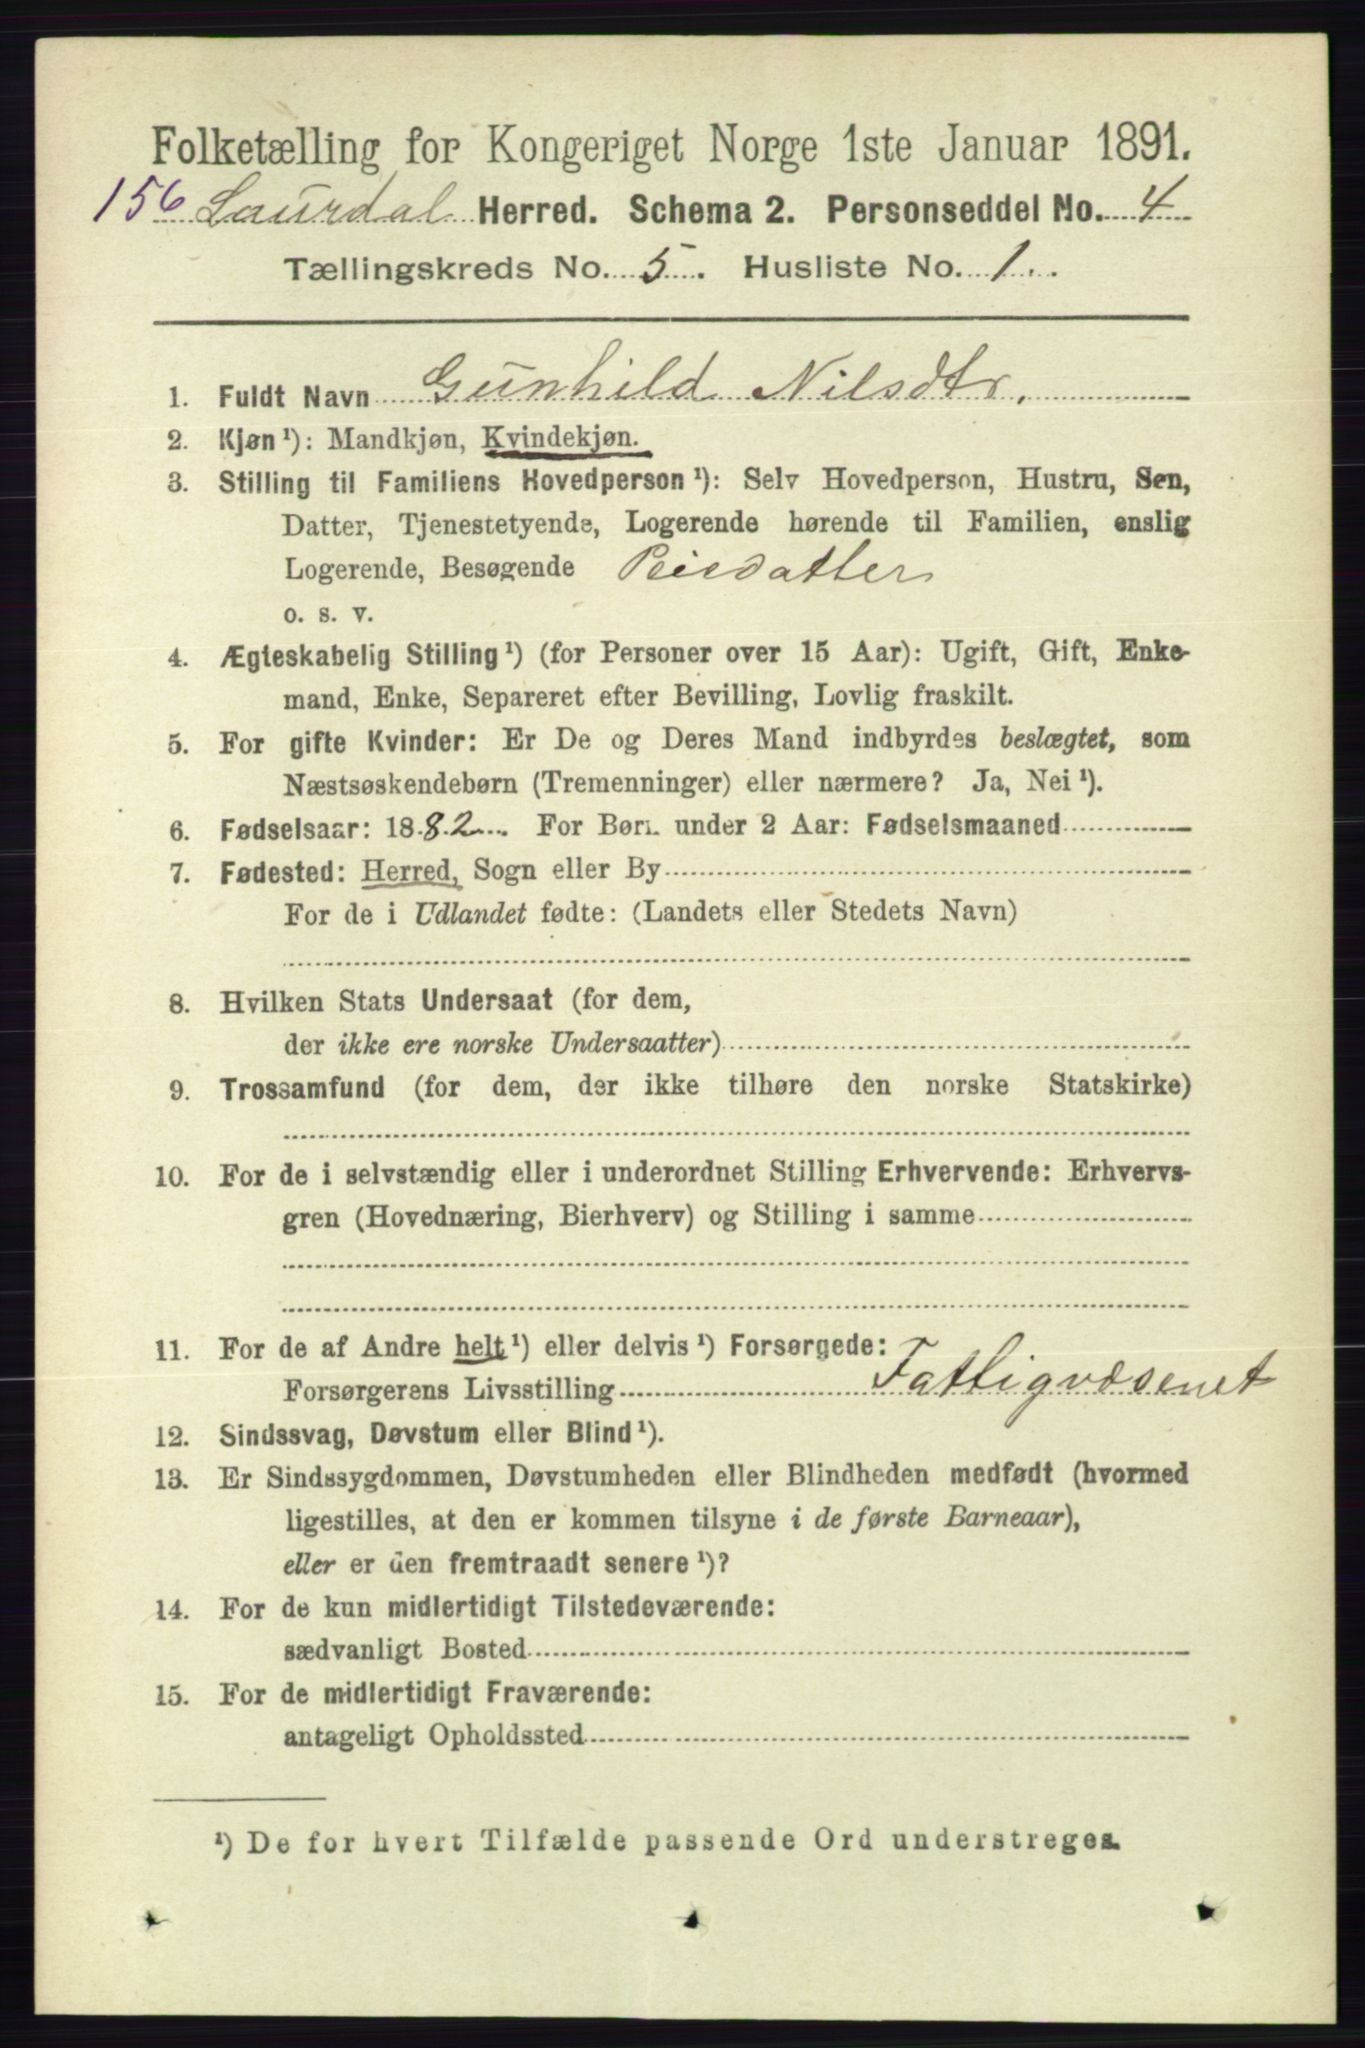 Folketælling for Kongeriget Norge 1ste Januar 1891.
156 Laurdal Herred. Schema 2. Personseddel No. 4
Tællingskreds No. 5. Husliste No. 1.
1. Fuldt Navn Gunhild Nilsdtr.
2. Kjøn ¹): Mandkjøn, Kvindekjøn.
3. Stilling til Familiens Hovedperson ¹): Selv Hovedperson, Hustru, Søn,
Datter, Tjenestetyende, Logerende hørende til Familien, enslig
Logerende, Besøgende Pleiedatter
o. s. v.
4. Ægteskabelig Stilling ¹) (for Personer over 15 Aar): Ugift, Gift, Enke-
mand, Enke, Separeret efter Bevilling, Lovlig fraskilt.
5. For gifte Kvinder: Er De og Deres Mand indbyrdes beslægtet, som
Næstsøskendebørn (Tremenninger) eller nærmere? Ja, Nei ¹).
6. Fødselsaar: 1882 For Børn under 2 Aar: Fødselsmaaned
7. Fødested: Herred, Sogn eller By
For de i Udlandet fødte: (Landets eller Stedets Navn)
8. Hvilken Stats Undersaat (for dem,
der ikke ere norske Undersaatter)
9. Trossamfund (for dem, der ikke tilhøre den norske Statskirke)
10. For de i selvstændig eller i underordnet Stilling Erhvervende: Erhvervs-
gren (Hovednæring, Bierhverv) og Stilling i samme
11. For de af Andre helt ¹) eller delvis ¹) Forsørgede:
Forsørgerens Livsstilling Fattigvæsenet
12. Sindssvag, Døvstum eller Blind ¹).
13. Er Sindssygdommen, Døvstumheden eller Blindheden medfødt (hvormed
ligestilles, at den er kommen tilsyne i de første Barneaar),
eller er den fremtraadt senere ¹)?
14. For de kun midlertidigt Tilstedeværende:
sædvanligt Bosted
15. For de midlertidigt Fraværende:
antageligt Opholdssted
¹) De for hvert Tilfælde passende Ord understreges.